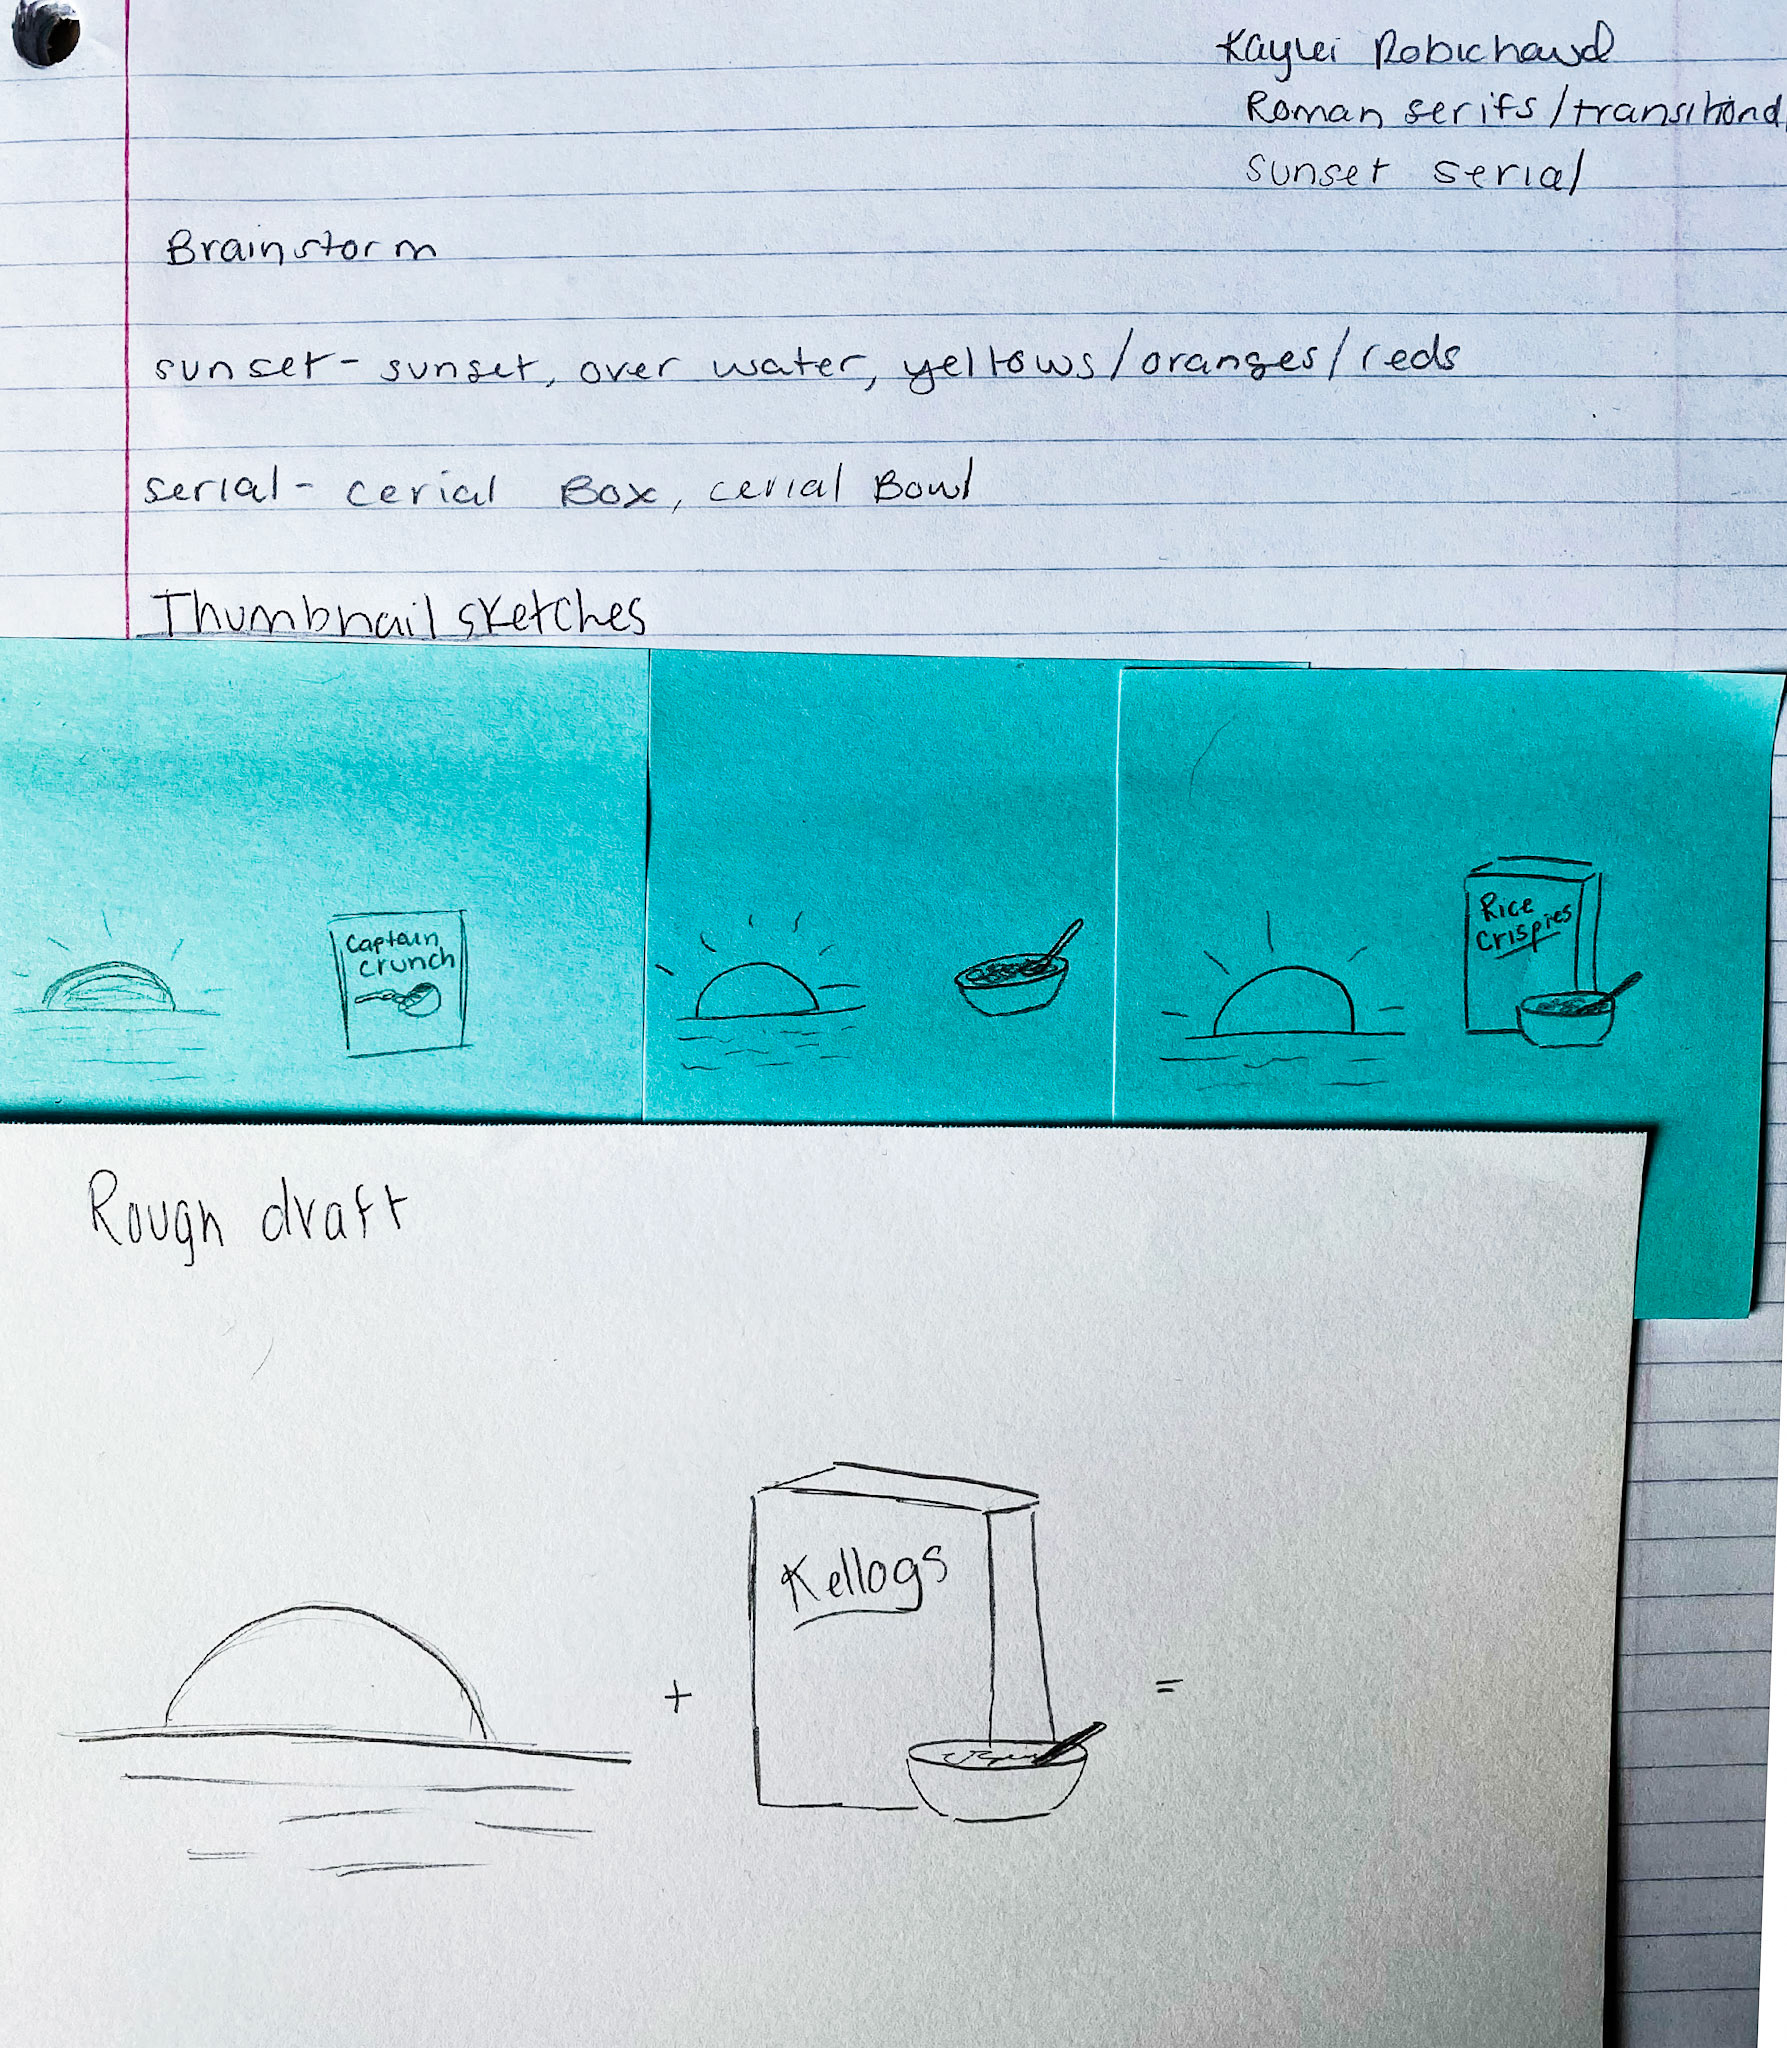 Kaylei Robichaud
Roman serifs/transitional
sunset serial
Brainstorm
sunset - sunset, over water, yellows/oranges/reds
serial - cerial Box, cerial Bowl
Thumbnail sketches
Captain
crunch
Rice
Crispies
Rough draft
Kellogs
+
=